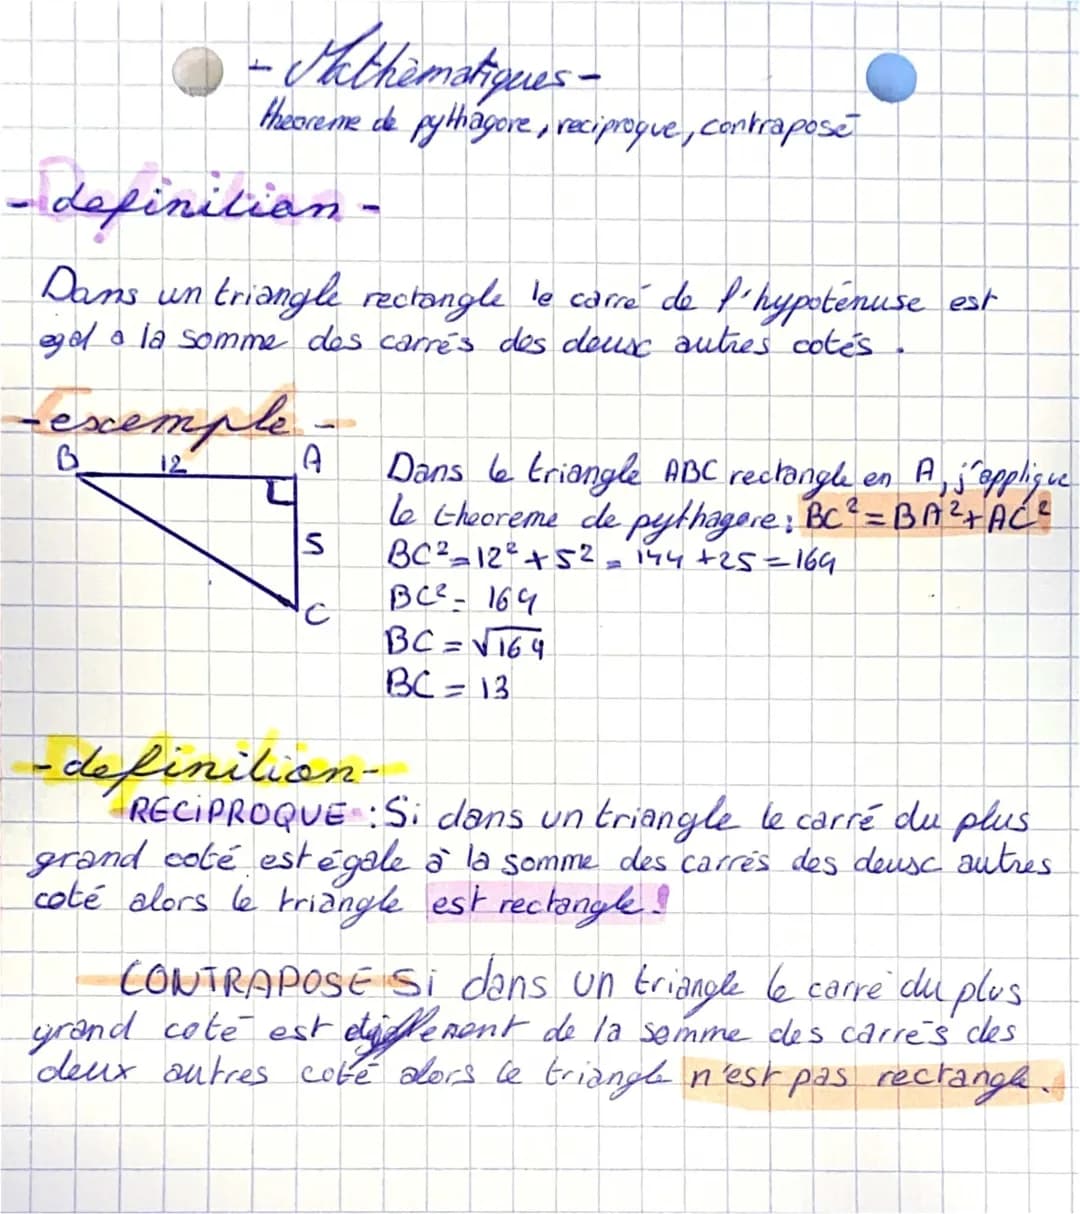 - Mathèmatiques -
theoreme de pythagore, reciproque, contraposé
- definition -
Dans un triangle rectangle le carré de l'hypoténuse est
egal a la somme des carrés des deux autres cotés.
- exemple -
B 12 A
5
C
Dans le triangle ABC rectangle en A, j'applique
le theoreme de pythagore : BC² = BA² + AC²
BC² = 12² + 5² = 144 + 25 = 169
BC² = 169
BC = √169
BC = 13
- definition -
RECIPROQUE : Si dans un triangle le carré du plus
grand coté est égale à la somme des carrés des deux autres
coté alors le triangle est rectangle !
CONTRAPOSE Si dans un triangle le carré du plus
grand coté est de la somme des carrés des
deux autres coté alors le triangle n'est pas rectangle.